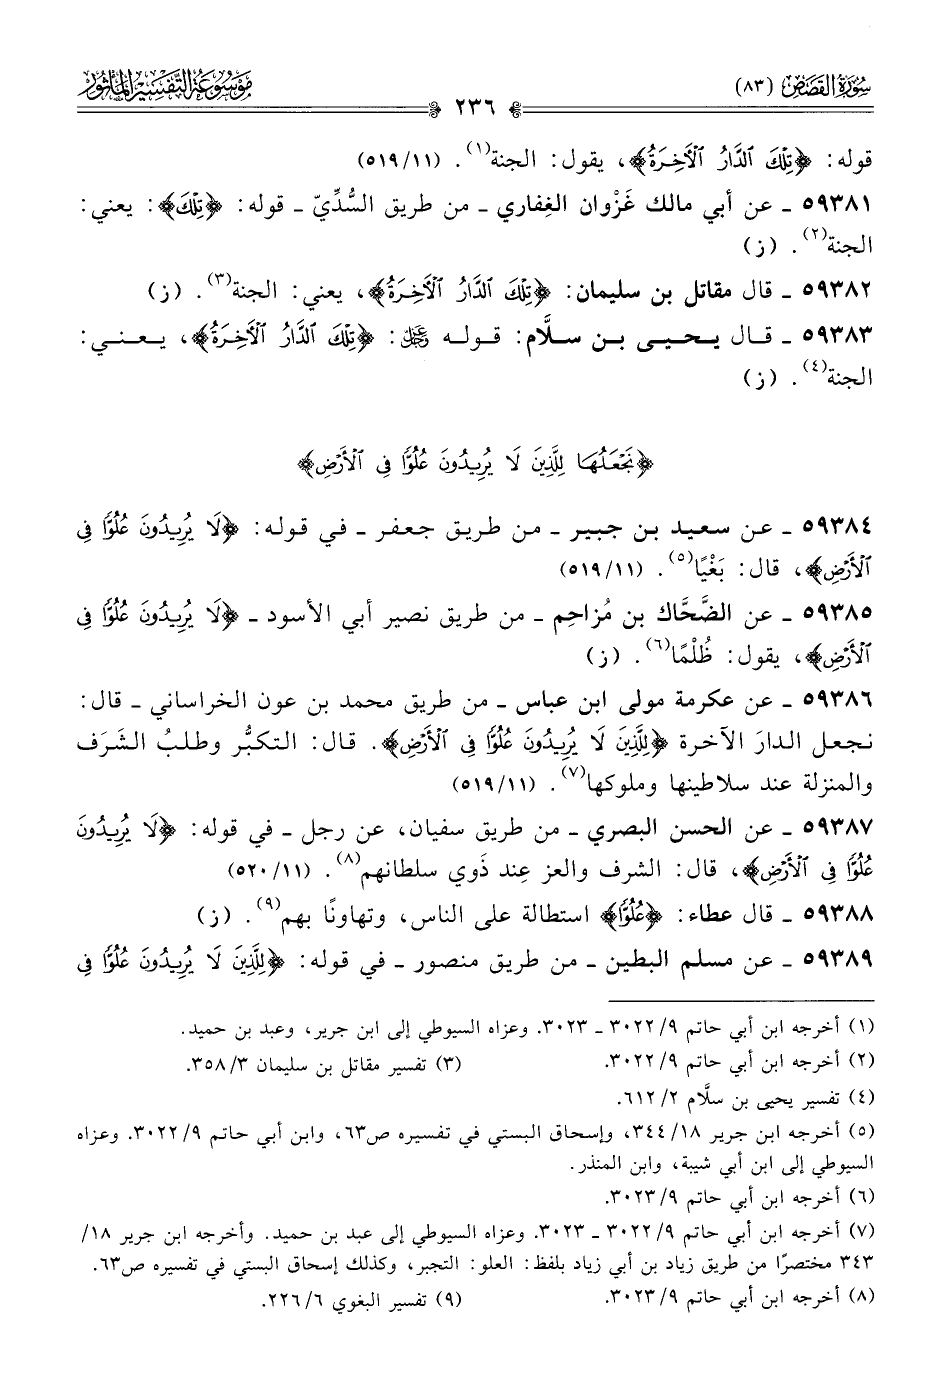 سورة القصص (٨٣)
٢٣٦
موسوعة التفسير المأثور
قوله: ﴿تِلْكَ ٱلدَّارُ ٱلْأَخِرَةُ﴾، يقول: الجنة(١). (٥١٩/١١)
٥٩٣٨١ ـ عن أبي مالك غَزْوان الغِفاري ـ من طريق السُّدِّيّ ـ قوله: ﴿تِلْكَ﴾: يعني:
الجنة(٢). (ز)
٥٩٣٨٢ ـ قال مقاتل بن سليمان: ﴿تِلْكَ ٱلدَّارُ ٱلْأَخِرَةُ﴾، يعني: الجنة(٣). (ز)
٥٩٣٨٣ ـ قال يحيى بن سلَّام: قوله ﷻ: ﴿تِلْكَ ٱلدَّارُ ٱلْأَخِرَةُ﴾، يعني:
الجنة(٤). (ز)
﴿نَجْعَلُهَا لِلَّذِينَ لَا يُرِيدُونَ عُلُوًّا فِى ٱلْأَرْضِ﴾
٥٩٣٨٤ ـ عن سعيد بن جبير ـ من طريق جعفر ـ في قوله: ﴿لَا يُرِيدُونَ عُلُوًّا فِى
ٱلْأَرْضِ﴾، قال: بَغْيًا(٥). (٥١٩/١١)
٥٩٣٨٥ ـ عن الضَّحَّاك بن مُزاحِم ـ من طريق نصير أبي الأسود ـ ﴿لَا يُرِيدُونَ عُلُوًّا فِى
ٱلْأَرْضِ﴾، يقول: ظُلْمًا(٦). (ز)
٥٩٣٨٦ ـ عن عكرمة مولى ابن عباس ـ من طريق محمد بن عون الخراساني ـ قال:
نجعل الدارَ الآخرة ﴿لِلَّذِينَ لَا يُرِيدُونَ عُلُوًّا فِى ٱلْأَرْضِ﴾. قال: التكبُّر وطلبُ الشَرَف
والمنزلة عند سلاطينها وملوكها(٧). (٥١٩/١١)
٥٩٣٨٧ ـ عن الحسن البصري ـ من طريق سفيان، عن رجل ـ في قوله: ﴿لَا يُرِيدُونَ
عُلُوًّا فِى ٱلْأَرْضِ﴾، قال: الشرف والعز عِند ذَوي سلطانهم(٨). (٥٢٠/١١)
٥٩٣٨٨ ـ قال عطاء: ﴿عُلُوًّا﴾ استطالة على الناس، وتهاونًا بهم(٩). (ز)
٥٩٣٨٩ ـ عن مسلم البطين ـ من طريق منصور ـ في قوله: ﴿لِلَّذِينَ لَا يُرِيدُونَ عُلُوًّا فِى
(١) أخرجه ابن أبي حاتم ٣٠٢٢/٩ ـ ٣٠٢٣. وعزاه السيوطي إلى ابن جرير، وعبد بن حميد.
(٢) أخرجه ابن أبي حاتم ٣٠٢٢/٩. (٣) تفسير مقاتل بن سليمان ٣٥٨/٣.
(٤) تفسير يحيى بن سلَّام ٦١٢/٢.
(٥) أخرجه ابن جرير ٣٤٤/١٨، وإسحاق البستي في تفسيره ص٦٣، وابن أبي حاتم ٣٠٢٢/٩. وعزاه
السيوطي إلى ابن أبي شيبة، وابن المنذر.
(٦) أخرجه ابن أبي حاتم ٣٠٢٣/٩.
(٧) أخرجه ابن أبي حاتم ٣٠٢٢/٩ ـ ٣٠٢٣. وعزاه السيوطي إلى عبد بن حميد. وأخرجه ابن جرير ١٨/
٣٤٣ مختصرًا من طريق زياد بن أبي زياد بلفظ: العلو: التجبر، وكذلك إسحاق البستي في تفسيره ص٦٣.
(٨) أخرجه ابن أبي حاتم ٣٠٢٣/٩. (٩) تفسير البغوي ٢٢٦/٦.